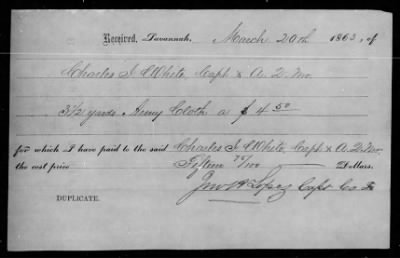 Received, Savannah, March 20th 1863, of
Charles I. White, Capt & A. Q. M.
3 1/2 yards Army Cloth a $ 4 50
for which I have paid to the said Charles I. White, Capt & A. Q. M.
the cost price Fifteen 75/100 Dollars.
Jno H Lopez Capt Co
DUPLICATE.